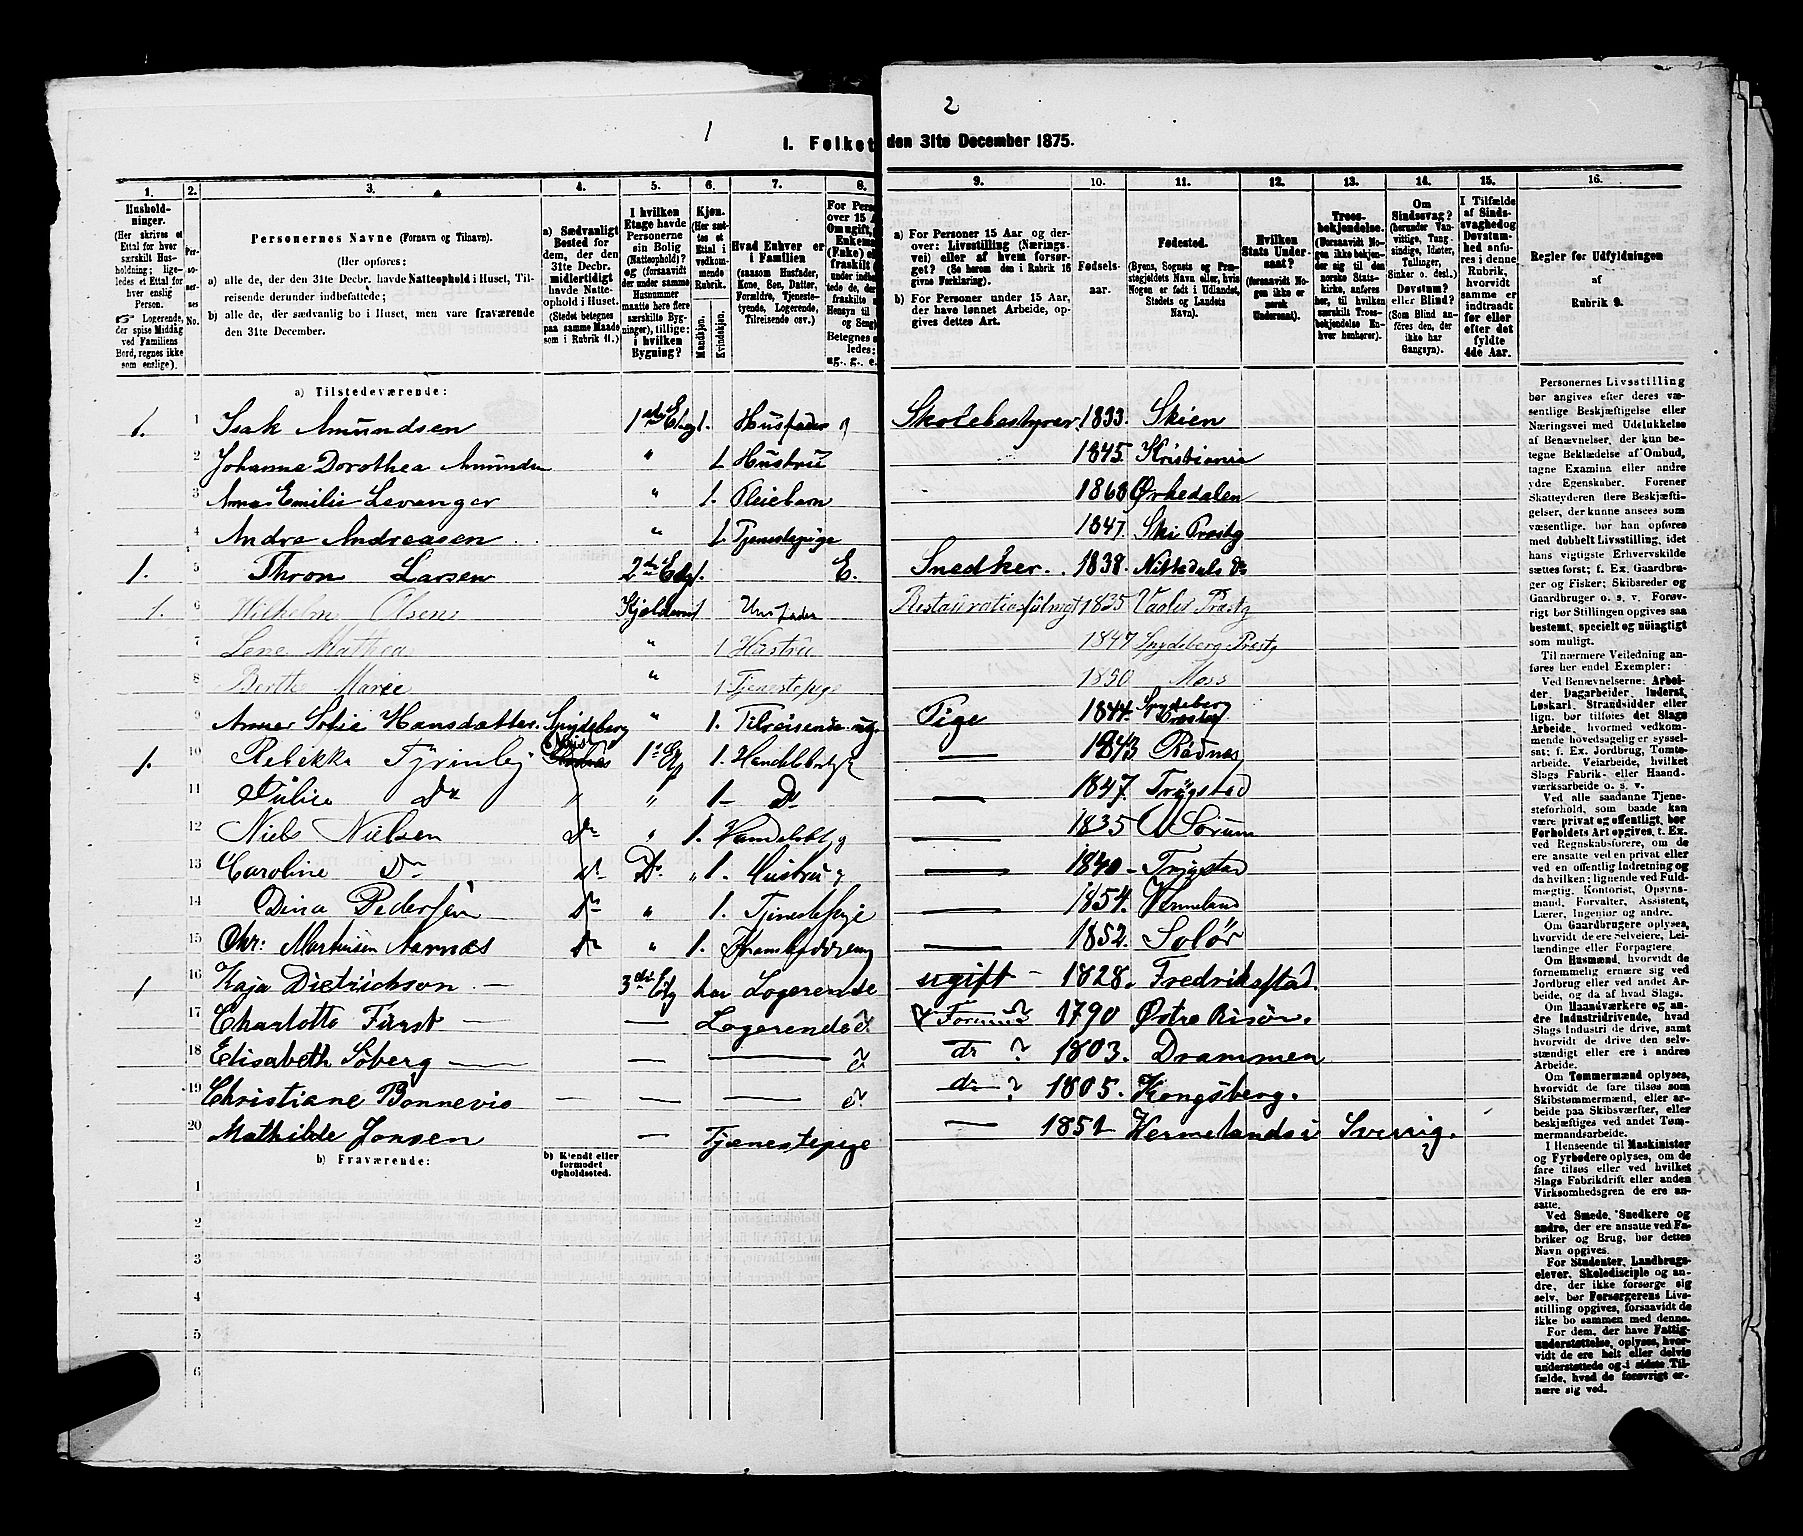 1
2
I. Folket den 31te December 1875.
1. 2. 3. 4. 5. 6. 7. 8. 9. 10. 11. 12. 13. 14. 15. 16.
Hushold-
ninger.
(Her skrives et
Ettal for hver
særskilt Hus-
holdning; lige-
ledes et Ettal
for hver
enslig
Person.
☞ Logerende,
der spise Middag
ved Familiens
Bord, regnes ikke
som enslige).
Per-
so-
ner-
nes
No.
Personernes Navne (Fornavn og Tilnavn).
(Her opføres:
a) alle de, der den 31te Decbr. havde Natteophold i Huset, Til-
reisende derunder indbefattede;
b) alle de, der sædvanlig bo i Huset, men vare fraværende
den 31te December.
a) Sædvanligt
Bosted for
dem, der den
31te Decbr.
midlertidigt
havde Natte-
ophold i Huset.
(Stedet betegnes
paa samme Maade
som i Rubrik 11.)
I hvilken
Etage havde
Personerne
sin Bolig
(Natteophold)?
og (forsaavidt
der under samme
Husnummer
maatte høre flere
særskilte Byg-
ninger), tillige:
i hvilken
Bygning?
Kjøn.
(Her sæt-
tes et
Ettal i
vedkom-
mende
Rubrik.
Mandkjøn.
Kvindekjøn.
Hvad Enhver er
i Familien
(saasom Husfader,
Kone, Søn, Datter,
Forældre, Tjeneste-
tyende, Logerende,
Tilreisende osv.)
For Perso
over 15 A
Om ugift,
Enkema
(Enke) e
fraskilt
under indb
tede de,
fraskilte
Hensyn til
og Seng
Betegnes
ledes:
ug., g., e.
a) For Personer 15 Aar og der-
over: Livsstilling (Nærings-
vei) eller af hvem forsør-
get? (Se herom den i Rubrik 16
givne Forklaring).
b) For Personer under 15 Aar,
der have lønnet Arbeide, op-
gives dettes Art.
Fødsels-
aar.
Fødested.
(Byens, Sognets og Præ-
stegjeldets Navn eller, hvis
Nogen er født i Udlandet,
Stedets og Landets
Navn).
Hvilken
Stats Under-
saat?
(forsaavidt No-
gen ikke er
norsk
Undersaat).
Troes-
bekjendelse.
(Dersaavidt No-
gen ikke bekjen-
der sig til den
norske Stats-
kirke, anføres
her, til hvilket
særskilt Troes-
bekjendelse En-
hver henhører).
Om
Sindssvag?
(herunder Van-
vittige, Tung-
sindige, Idioter,
Tullinger,
Sinker o. desl.)
Døvstum?
eller Blind?
(Som Blind an-
føres den, der
ikke har
Gangsyn).
I Tilfælde
af Sinds-
svaghed og
Døvstum-
hed anfø-
res i denne
Rubrik,
hvorvidt
samme er
indtraadt
før eller
efter det
fyldte
4de Aar.
Regler for Udfyldningen
af
Rubrik 9.
a) Tilstedeværende:
1. 1 Isak Amundsen 1ste Etg. 1. Husfader g Skolebestyrer. 1833. Skien
2 Johanne Dorothea Amundsen " 1. Hustru 1845. Kristiania
3 Anna Emilie Levanger " 1. Pleiebarn 1868 Ørkedalen
4 Andra Andreasen " 1. Tjenestepige 1847. Ski Præstg
1. 5 Thron Larsen 2den Etg. 1. E. Snedker. 1838. Nittedals Do
1. 6 Wilhelm Olsen Kjelderen 1 Husfader Restaurationsfulmgt 1835 Vaaler Præstg
7 Lene Mathea " 1 Hustru 1847 Spydeberg Præstg
8 Berthe Marie " 1. Tjenestepige 1850 Moss
9 Sofie Hansdatter. Spydeberg " 1. Tilreisende ug. Pige 1844. Spydeberg Præstg
1. 10 Rebekka 1ste Etg 1. — 1843
11 Julie Do " " 1 — Do — 1847. Trygstad
12 Niels Nielsen Do " 1. — 1835 Sørum
13 Caroline Do Do Do " 1. Hustru g — 1840 — Trygstad
14 Dina Pedersen Do " 1. Tjenestepige — 1854. Vermeland
15 Chr: Aarnæs Do " 1. — 1852. Solør
1 16 Kaja Dietrichson — 3die Etg Logerende ugift — 1828. Fredrikstad.
17 Charlotte Fürst — — Logerende 1790 Østre Risør.
18 Elisabeth Söberg — — — do ? 1803. Drammen
19 Christiane Bonnevie — — — do ? 1805. Kongsberg.
20 Mathilde Jonsen — Tjenestepige — 1851 Vermeland i Sverrig.
b) Fraværende:
b) Kjendt eller
formodet
Opholdssted.
1
2
3
4
5
6
Personernes Livsstilling
bør angives efter deres væ-
sentlige Beskjæftigelse eller
Næringsvei med Udelukkelse
af Benævnelser, der kun be-
tegne Beklædelse af Ombud,
tagne Examina eller andre
ydre Egenskaber. Forener
Skatteyderen flere Beskjæfti-
gelser, der kunne ansees som
væsentlige, bør han opføres
med dobbelt Livsstilling, idet
hans vigtigste Erhvervskilde
sættes først; f. Ex. Gaardbru-
ger og Fisker; Skibsreder og
Gaardbruger o. s. v. Forøv-
rigt bør Stillingen opgives saa
bestemt, specielt og nøiagtigt
som muligt.
Til nærmere Veiledning an-
føres her endel Exempler:
Ved Benævnelserne: Arbei-
der, Dagarbeider, Inderst,
Løskarl, Strandsidder eller
lign. bør tilføies det Slags
Arbeide, hvormed vedkom-
mende hovedsagelig er syssel-
sat; f. Ex. Jordbrug, Tomte-
arbeide, Veiarbeide, hvilket
Slags Fabrik- eller Haand-
værksarbeide o. s. v.
Ved alle saadanne Tjene-
steforhold, som baade kan
være privat og offentligt, bør
Forholdets Art opgives, t. Ex.
ved Regnskabsførere, om de
ere ansatte ved en privat eller
ved en offentlig Indretning og
da hvilken; lignende ved Fuld-
mægtig, Kontorist, Opsyns-
mand, Forvalter, Assistent,
Lærer, Ingeniør og andre.
Om Gaardbrugere oplyses,
hvorvidt de ere Selveiere, Lei-
lændinge eller Forpagtere.
Om Husmænd, hvorvidt de
fornemmelig ernære sig ved
Jordbrug eller ved andet Ar-
beide, og da af hvad Slags.
Om Haandværkere og an-
dre Industridrivende, hvad
Slags Industri de drive, samt
hvorvidt de drive den selv-
stændigt eller ere i andres
Arbeide.
Om Tømmermænd oplyses,
hvorvidt de fare tilsøs som
Skibstømmermænd, eller ar-
beide paa Skibsværfter, eller
beskjæftiges ved andet Tøm-
mermandsarbeide.
I Henseende til Maskinister
og Fyrbødere oplyses, om de
fare tilsøs eller ved hvilket
Slags Fabrikdrift eller anden
Virksomhedsgren de ere an-
satte.
Ved Smede, Snedkere og
andre, der ere ansatte ved Fa-
briker og Brug, bør dettes
Navn opgives.
For Studenter, Landbrugs-
elever, Skoledisciple og an-
dre, der ikke forsørge sig
selv, bør Forsørgerens Livs-
stilling opgives, forsaavidt de
ikke bo sammen med denne.
For dem, der have Fattig-
understøttelse, oplyses, hvor-
vidt de ere helt eller delvis
understøttede og i sidste Til-
fælde, hvad de forøvrigt er-
nære sig ved.